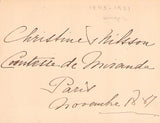 1843-1921
Christine Nilsson
Comtesse de Miranda
Paris
Novembre